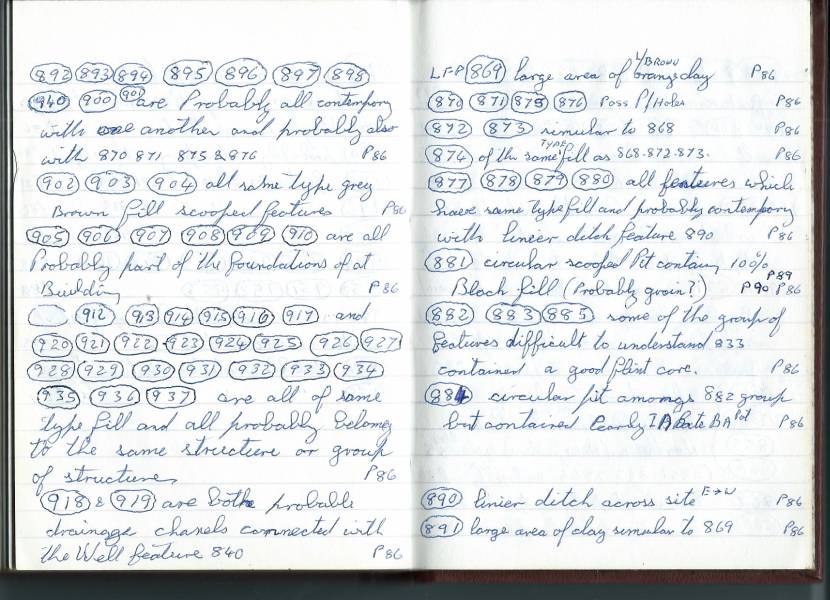 892 893 894 895 896 897 898
940 900 901 are Probably all contempory
with one another and probably also
with 870 871 875 & 876 P86
902 903 904 all same type grey
Brown fill scooped features P86
905 906 907 908 909 910 are all
Probably part of the foundations of at
Building P86
912 913 914 915 916 917 and
920 921 922 923 924 925 926 927
928 929 930 931 932 933 934
935 936 937 are all of same
type fill and all probably belong
to the same structure or group
of structures P86
918 & 919 are both probable
drainage chanels connected with
the Well feature 840 P86
L F P 869 large area of L/BROWN orange clay P86
870 871 875 876 Poss P/Holes P86
872 873 simular to 868 P86
874 of the same TYPE fill as 868.872.873. P86
877 878 879 880 all features which
have same type fill and probably contempory
with linier ditch feature 890 P86
881 circular scooped Pit containg 100% P89
Black fill (Probably grain?) P90 P86
882 883 885 some of the group of
features difficult to understand 833
contained a good flint core. P86
884 circular pit amongs 882 group
but contained Early IA Late BA Pot P86
890 linier ditch across site E→W P86
891 large area of clay simular to 869 P86